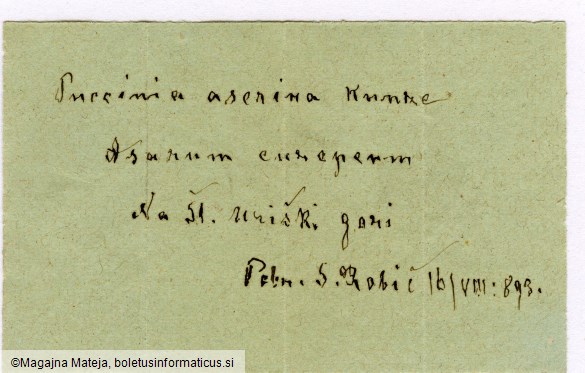 Puccinia aserina Kunze
Asarum europeum
Na Št. Uriški gori
S. Robič 16/VIII: 893.
©Magajna Mateja, boletusinformaticus.si